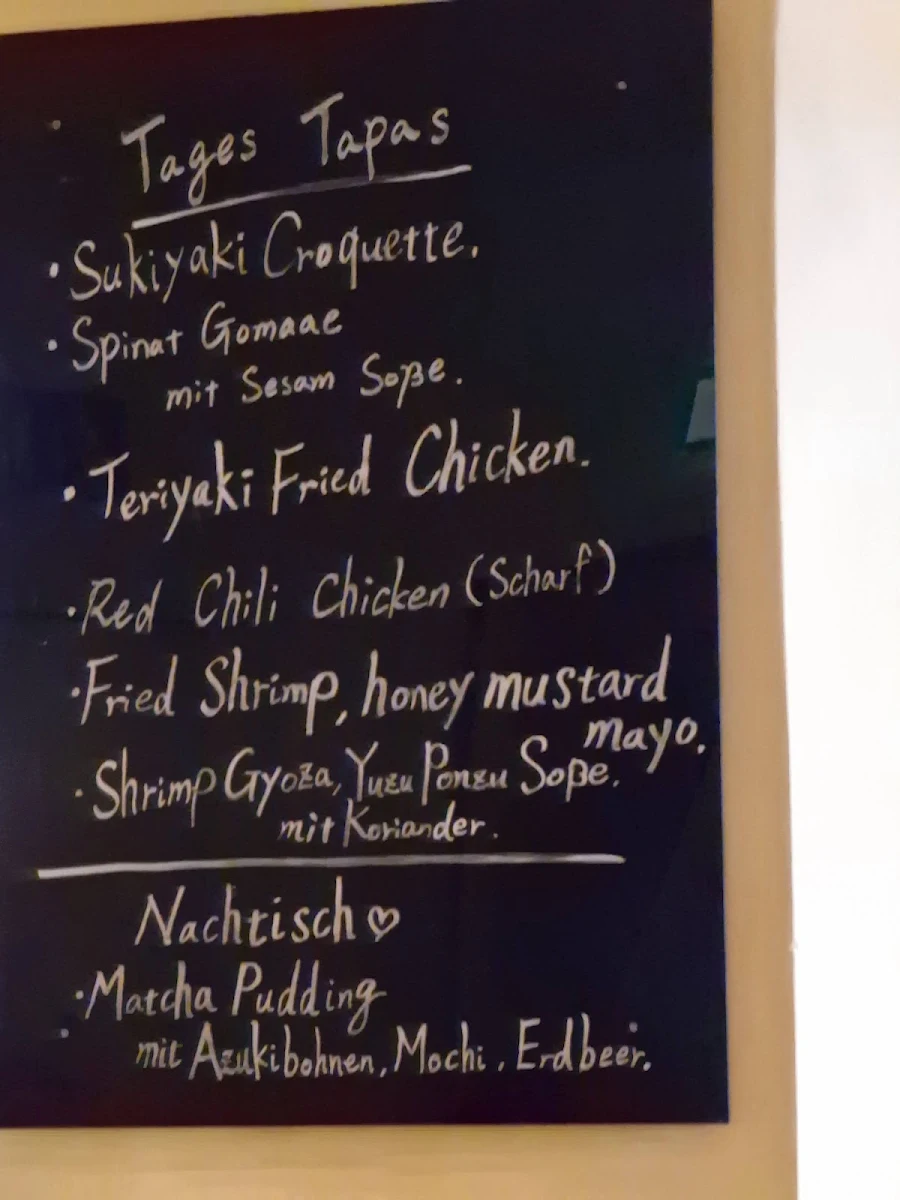 Tages Tapas
· Sukiyaki Croquette.
· Spinat Gomaae
mit Sesam Soße.
· Teriyaki Fried Chicken.
· Red Chili Chicken (Scharf)
· Fried Shrimp, honey mustard
mayo.
· Shrimp Gyoza, Yuzu Ponzu Soße.
mit Koriander.
Nachtisch ♡
· Matcha Pudding
mit Azukibohnen, Mochi, Erdbeer.